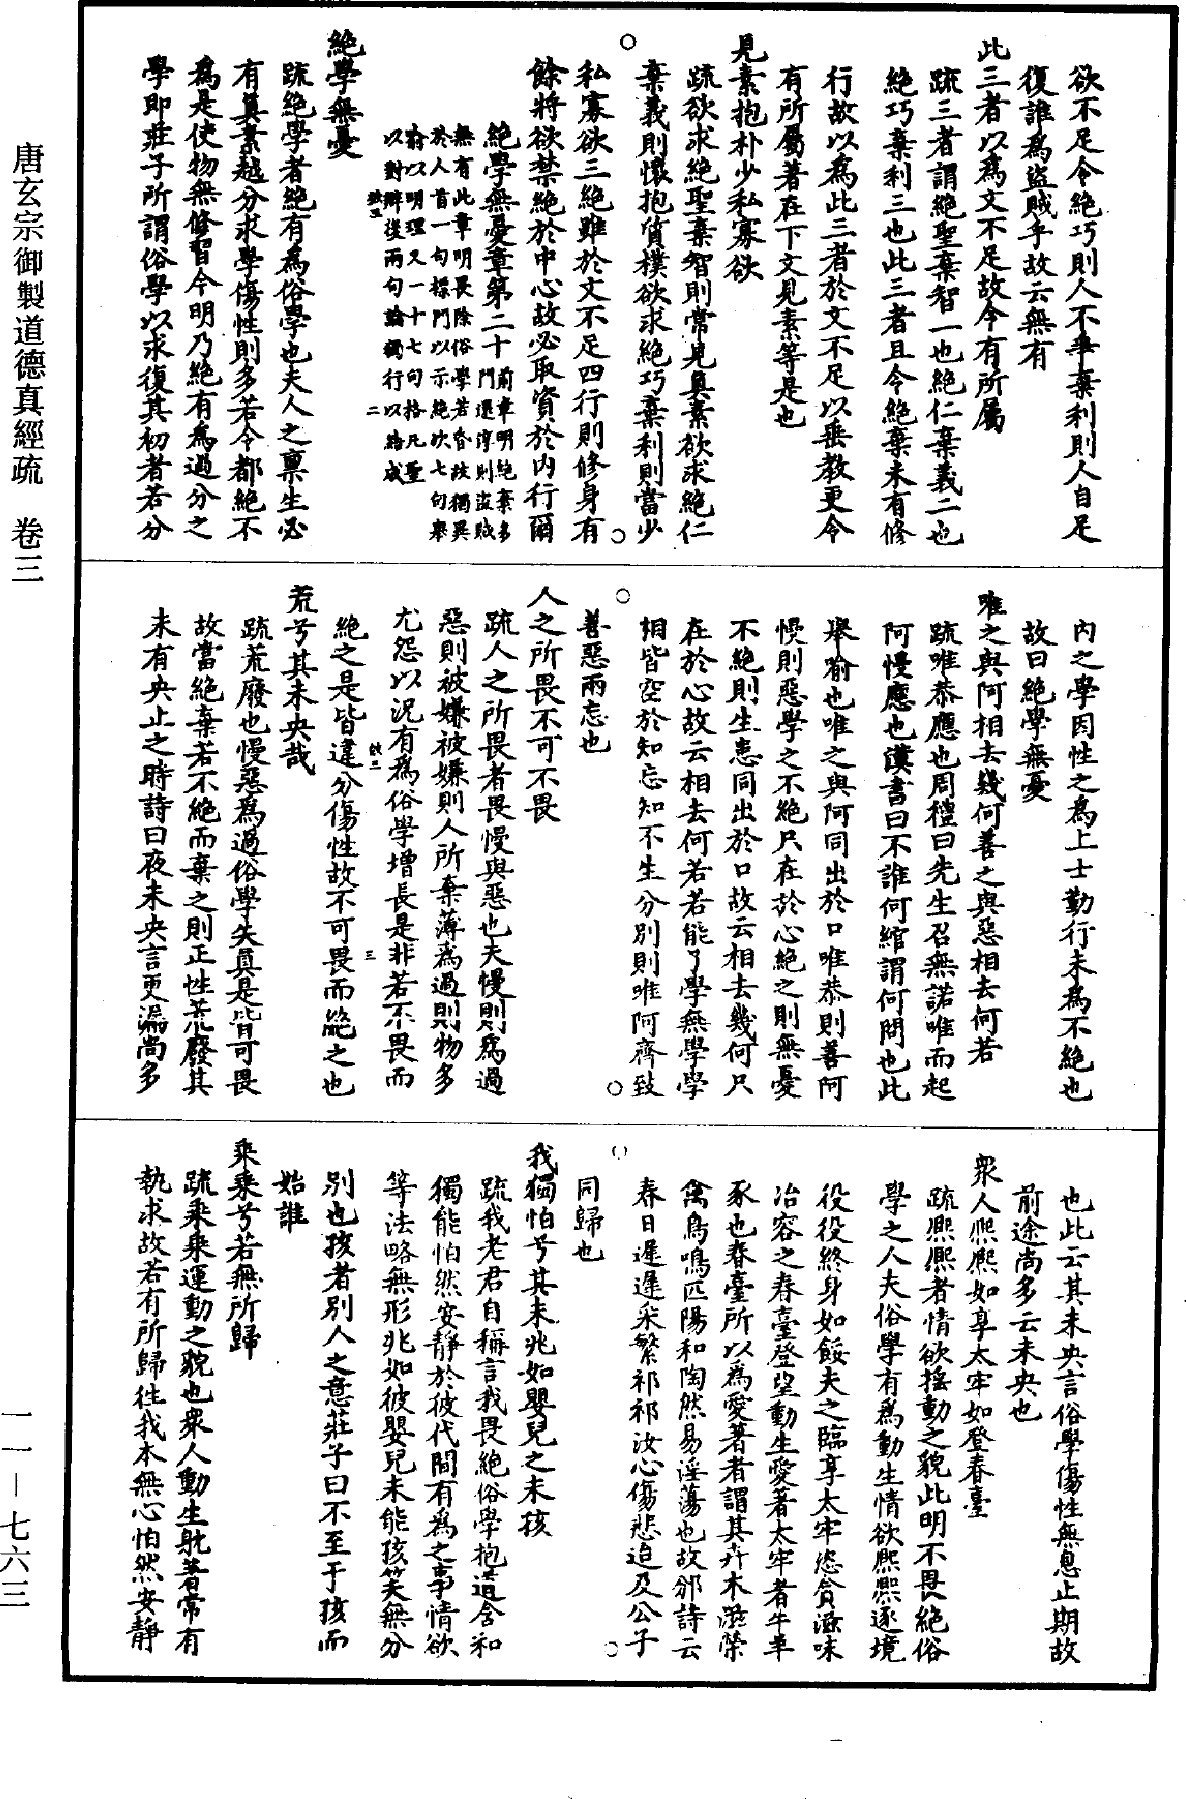 欲不足令絕巧則人不弃棄利則人自足
復誰爲盜賊乎故云無有
此三者以爲文不足故令有所屬
疏三者謂絕聖棄智一也絕仁棄義二也
絕巧棄利三也此三者且令絕棄未有修
行故以爲此三者於文不足以垂教更令
有所屬著在下文見素等是也
見素抱朴少私寡欲
疏欲求絕聖棄智則常見真素欲求絕仁
棄義則懷抱質樸欲求絕巧棄利則當少
私寡欲三絕雖於文不足四行則修身有
餘將欲禁絕於中心故必取資於內行爾
絕學無憂章第二十
前章明絕棄多門還淳則盜賊
無有此章明畏除俗學若昏故獨異
於人首一句標門以示絕次七句舉
喻以明理又一十七句格凡聖
以對辯後兩句論獨行以結成
二
絕學無憂
疏絕學者絕有爲俗學也夫人之稟生必
有真素越分求學傷性則多若令都絕不
爲是使物無修習今明乃絕有爲過分之
學即莊子所謂俗學以求復其初者若分
內之學因性之爲上士勤行未爲不絕也
故曰絕學無憂
唯之與阿相去幾何善之與惡相去何若
疏唯恭應也周禮曰先生召無諾唯而起
阿慢應也漢書曰不誰何綰謂何問也此
舉喻也唯之與阿同出於口唯恭則善阿
慢則惡學之不絕只在於心絕之則無憂
不絕則生患同出於口故云相去幾何只
在於心故云相去何若若能了學無學學
相皆空於知忘知不生分別則唯阿齊致
善惡兩忘也
人之所畏不可不畏
疏人之所畏者畏慢與惡也夫慢則爲過
惡則被嫌被嫌則人所棄薄爲過則物多
尤怨以況有爲俗學增長是非若不畏而
三
絕之是皆違分傷性故不可畏而絕之也
荒兮其未央哉
疏荒廢也慢惡爲過俗學失真是皆可畏
故當絕棄若不絕而棄之則正性荒廢其
未有央止之時詩曰夜未央言更漏尚多
也此云其未央言俗學傷性無息止期故
前途尚多云未央也
衆人熙熙如享太牢如登春臺
疏熙熙者情欲搖動之貌此明不畏絕俗
學之人夫俗學有爲動生情欲熙熙逐境
役役終身如餒夫之臨享太牢恣貪滋味
冶容之春臺登望動生愛著太牢者牛羊
豕也春臺所以爲愛著者謂其卉木滋榮
禽鳥鳴匹陽和陶然易淫蕩也故邠詩云
春日遲遲采蘩祁祁汝心傷悲迨及公子
同歸也
我獨怕兮其未兆如嬰兒之未孩
疏我老君自稱言我畏絕俗學抱道含和
獨能怕然安靜於彼代間有爲之事情欲
等法略無形兆如彼嬰兒未能孩笑無分
別也孩者別人之意莊子曰不至于孩而
始誰
乘乘兮若無所歸
疏乘乘運動之貌也衆人動生躭著常有
執求故若有所歸往我本無心怕然安靜
唐玄宗御製道德真經疏　卷三
一一—七六三